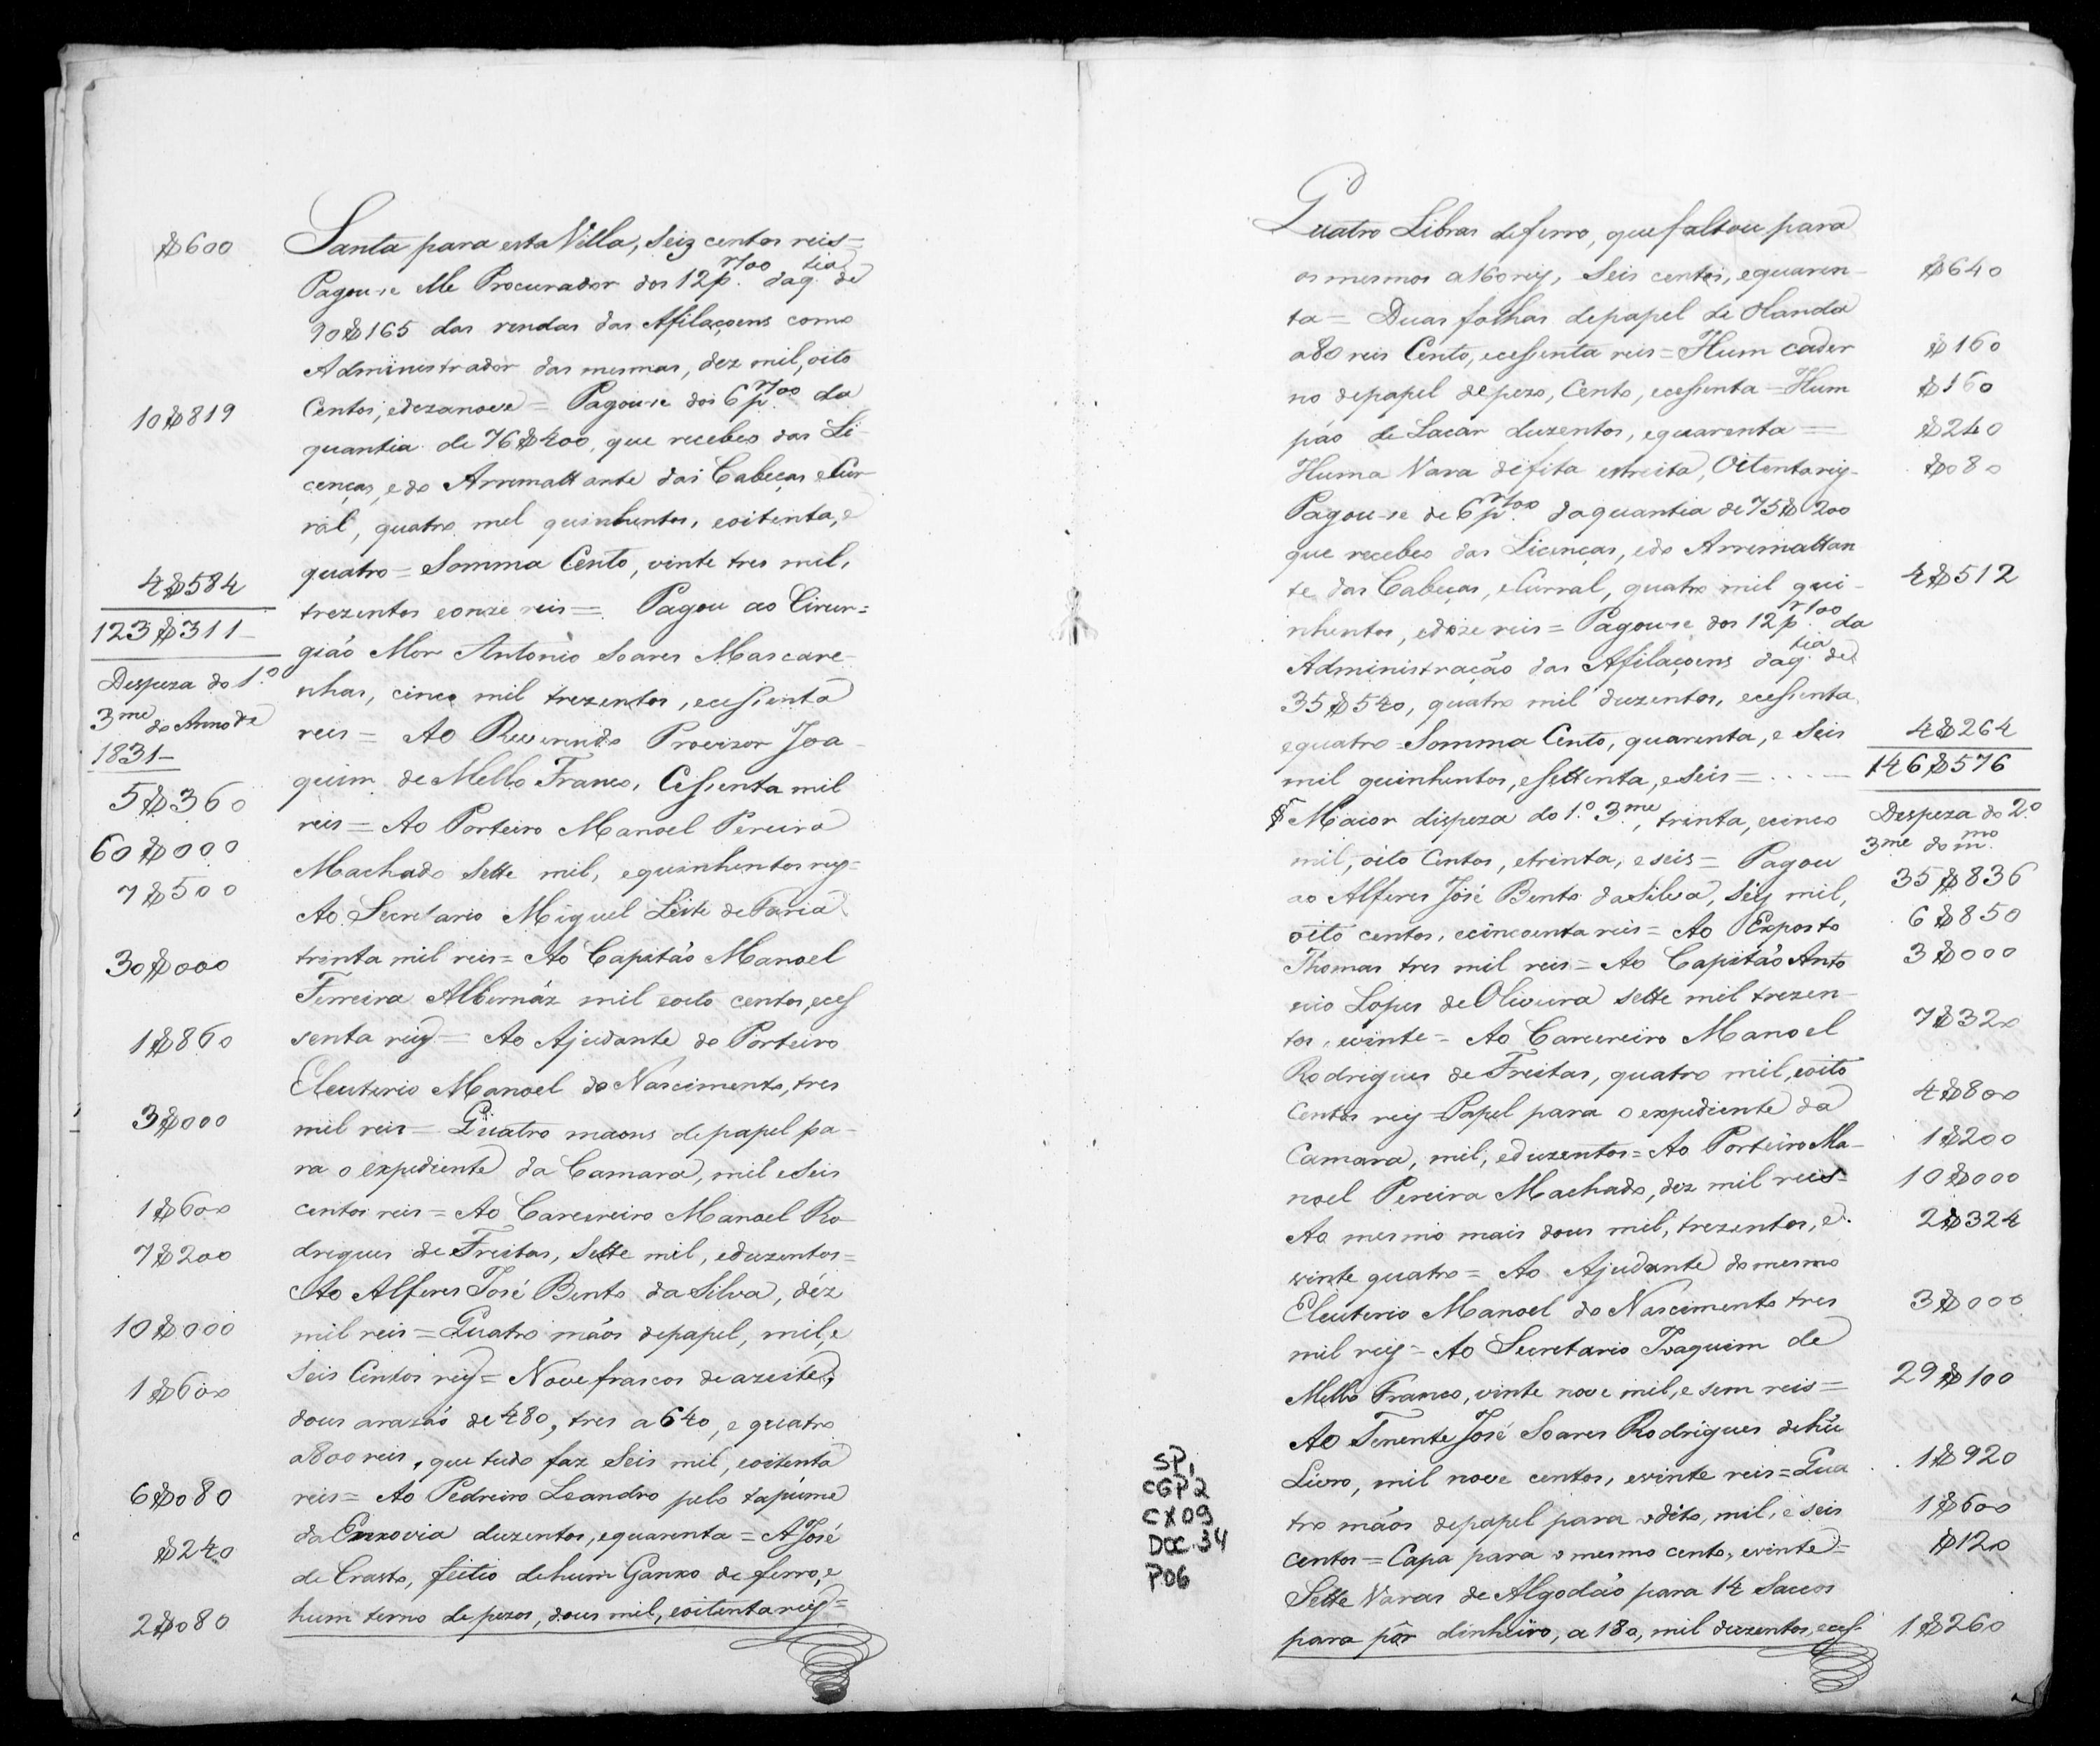 $600
Santa para esta Villa, Seiz centos reis =
Pagou-se Me Procurador dos 12 p.r %00 da q.tia de
90$165 das rendas das Afilaçoens como
Administrador das mesmas, dez mil, oito
10$819
Centos, edezanove = Pagou-se dos 6 p.r %00 da
quantia de 76$400, que recebeo das Li-
cenças, e do Arremattante das Cabeças e Cur-
ral, quatro mil quinhentos, eoitenta, e
4$584
quatro = Somma Cento, vinte tres mil,
123$311
trezentos eonze reis = Pagou ao Cirur=
gião Mor Antonio Soares Mascare-
Despeza do 1.º
3.me do Anno de
1831-
nhas, cinco mil trezentos, ecessenta
reis = Ao Reverendo Provizor Joa-
5$360
quim de Mello Franco, Cessenta mil
60$000
reis = Ao Porteiro Manoel Pereira
7$500
Machado Sette mil, equinhentos reis=
Ao Secretario Miguel Leite de Faria
30$000
trinta mil reis = Ao Capitão Manoel
Ferreira Albernáz mil eoito centos, eces
1$860
senta reis = Ao Ajudante do Porteiro
Eleuterio Manoel do Nascimento, tres
3$000
mil reis = Quatro maons depapel pa-
ra o expediente da Camara, mil eSeis
1$600
centos reis = Ao Carcereiro Manoel Ro-
7$200
drigues de Freitas, Sette mil, eduzentos =
Ao Alferes José Bento da Silva, déz
10$000
mil reis = Quatro mãos depapel, mil, e
1$600
Seis Centos reis = Nove frascos de azeite,
dous arazão de 480, tres a 640, e quatro
a 800 reis, que tudo faz Seis mil, eoitenta
6$080
reis = Ao Pedreiro Leandro pelo tapume
$240
da Enxovia duzentos, equarenta = A José
de Crasto, feitio dehum Ganxo de ferro, e
2$080
hum terno de pezos, dous mil, eoitenta reis =
Quatro Libras deferro, que faltou para
os mesmos a 160 reis, Seis centos, equaren-
$640
ta = Duas folhas depapel de Olanda
a 80 reis Cento, ecessenta reis = Hum cader
$160
no depapel depezo, Cento, ecessenta = Hum
$160
páo de Lacar duzentos, equarenta =
$240
Huma Vara defita estreita, Oitenta reis-
$080
Pagou-se de 6 p.r %00 daquantia de 75$200
que recebeo das Licenças, edo Arremattan
te das Cabeças, eCurral, quatro mil qui-
4$512
nhentos, edoze reis = Pagou-se dos 12 p.r %00 da
Administração das Afilaçoens daq.tia de
35$540, quatro mil duzentos, ecessenta
equatro = Somma Cento, quarenta, e Seis
4$264
mil quinhentos, eSettenta, eSeis = . . . .
146$576
§ Maior dispeza do 1.º 3.me, trinta, ecinco
Despeza do 2.º
3me do m.mo
mil, oito Centos, etrinta, eseis = Pagou
35$836
ao Alferes José Bento da Silva, Seis mil,
6$850
oito centos, ecincoenta reis = Ao Exposto
Thomas tres mil reis = Ao Capitão Anto
3$000
nio Lopes de Oliveira sette mil trezen-
7$320
tos, evinte = Ao Carcereiro Manoel
Rodrigues de Freitas, quatro mil, eoito
4$800
Centos reis = Papel para o expediente da
Camara, mil, eduzentos = Ao Porteiro Ma-
1$200
noel Pereira Machado, dez mil reis =
10$000
Ao mesmo mais dous mil, trezentos, e
2$324
vinte quatro = Ao Ajudante do mesmo
Eleuterio Manoel do Nascimento tres
3$000
mil reis = Ao Secretario Joaquim de
Mello Franco, vinte nove mil, e sem reis =
29$100
Ao Tenente José Soares Rodrigues dehũ
Livro, mil nove centos, evinte reis = Qua
1$920
tro mãos depapel para odito, mil, e seis
1$600
centos = Capa para o mesmo cento, evinte =
$120
Sette Varas de Algodão para 14 Saccos
para pôr dinheiro, a 180, mil duzentos, eces-
1$260
SP,
CGP2
CX09
DOC.34
P06